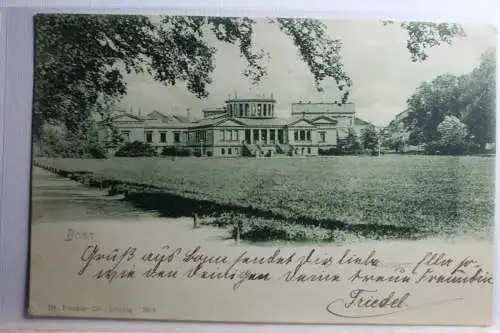 Bonn
Gruß aus Bonn sendet Dir liebe Ella so
wie den Deinigen Deine treue Freundin
Friedel
Dr. Trenkler Co., Leipzig.